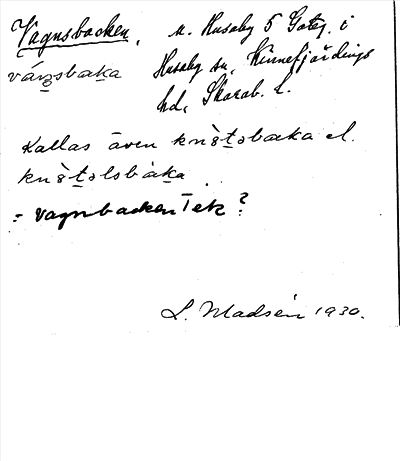 Vagnsbacken, u. Husaby 5 Gateg. i
vá̀ṉsbaka Husaby sn, Kinnefjärdings
hd, Skarab. l.
Kallas även knìstəbacka el.
knìstəlsbàka
= Vagnbacken Tek?
L. Madsén 1930.